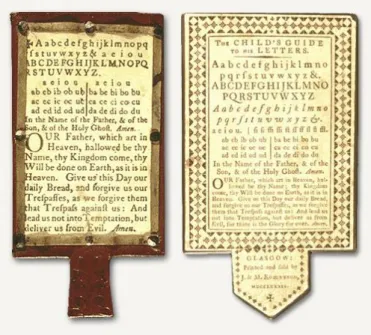 Aabcdefghijklmnopq
rſstuvwxyz& aeiou
ABCDEFGHIJKLMNOPQ
RSTUVWXYZ.
a e i o u a e i o u
ab eb ib ob ub ba be bi bo bu
ac ec ic oc uc ca ce ci co cu
ad ed id od ud da de di do du
In the Name of the Father, & of the
Son, & of the Holy Ghoſt. Amen.
OUR Father, which art in
Heaven, hallowed be thy
Name, thy Kingdom come, thy
Will be done on Earth, as it is in
Heaven. Give us this Day our
daily Bread, and forgive us our
Treſpaſſes, as we forgive them
that Treſpaſs againſt us: And
lead us not into Temptation, but
deliver us from Evil. Amen.
THE CHILD'S GUIDE
TO HIS LETTERS.
Aabcdefghijklmno
pqrſstuvwxyz&.
ABCDEFGHIJKLMNO
PQRSTUVWXYZ.
Aabcdefghijklmno
pqrſstuvwxyz&
aeiou.
ab eb ib ob ub ba be bi bo bu
ac ec ic oc uc ca ce ci co cu
ad ed id od ud da de di do du
In the Name of the Father, & of the
Son, & of the Holy Ghoſt. Amen.
OUR Father, which art in Heaven, hal-
lowed be thy Name; thy Kingdom
come, thy Will be done on Earth, as it is in
Heaven. Give us this Day our daily Bread,
and forgive us our Treſpaſſes, as we forgive
them that Treſpaſs againſt us: And lead us
not into Temptation, but deliver us from
Evil, for thine is the Glory for ever. Amen.
GLASGOW:
Printed and Sold by
J. & M. ROBERTSON,